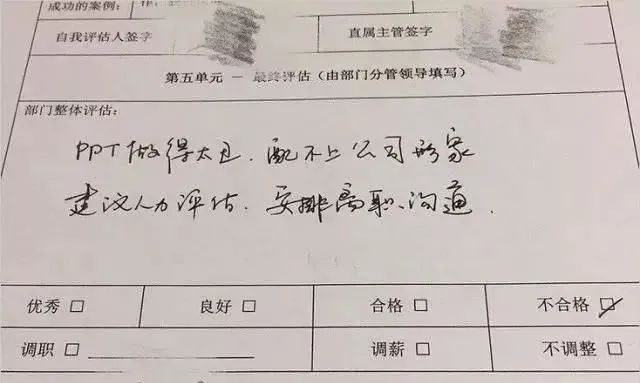 成功的案例：
自我评估人签字
直属主管签字
第五单元 — 最终评估（由部门分管领导填写）
部门整体评估：
PPT做得太丑，配不上公司形象
建议人力评估，安排离职沟通。
优秀 □ 良好 □ 合格 □ 不合格 ☑
调职 □ 调薪 □ 不调整 □